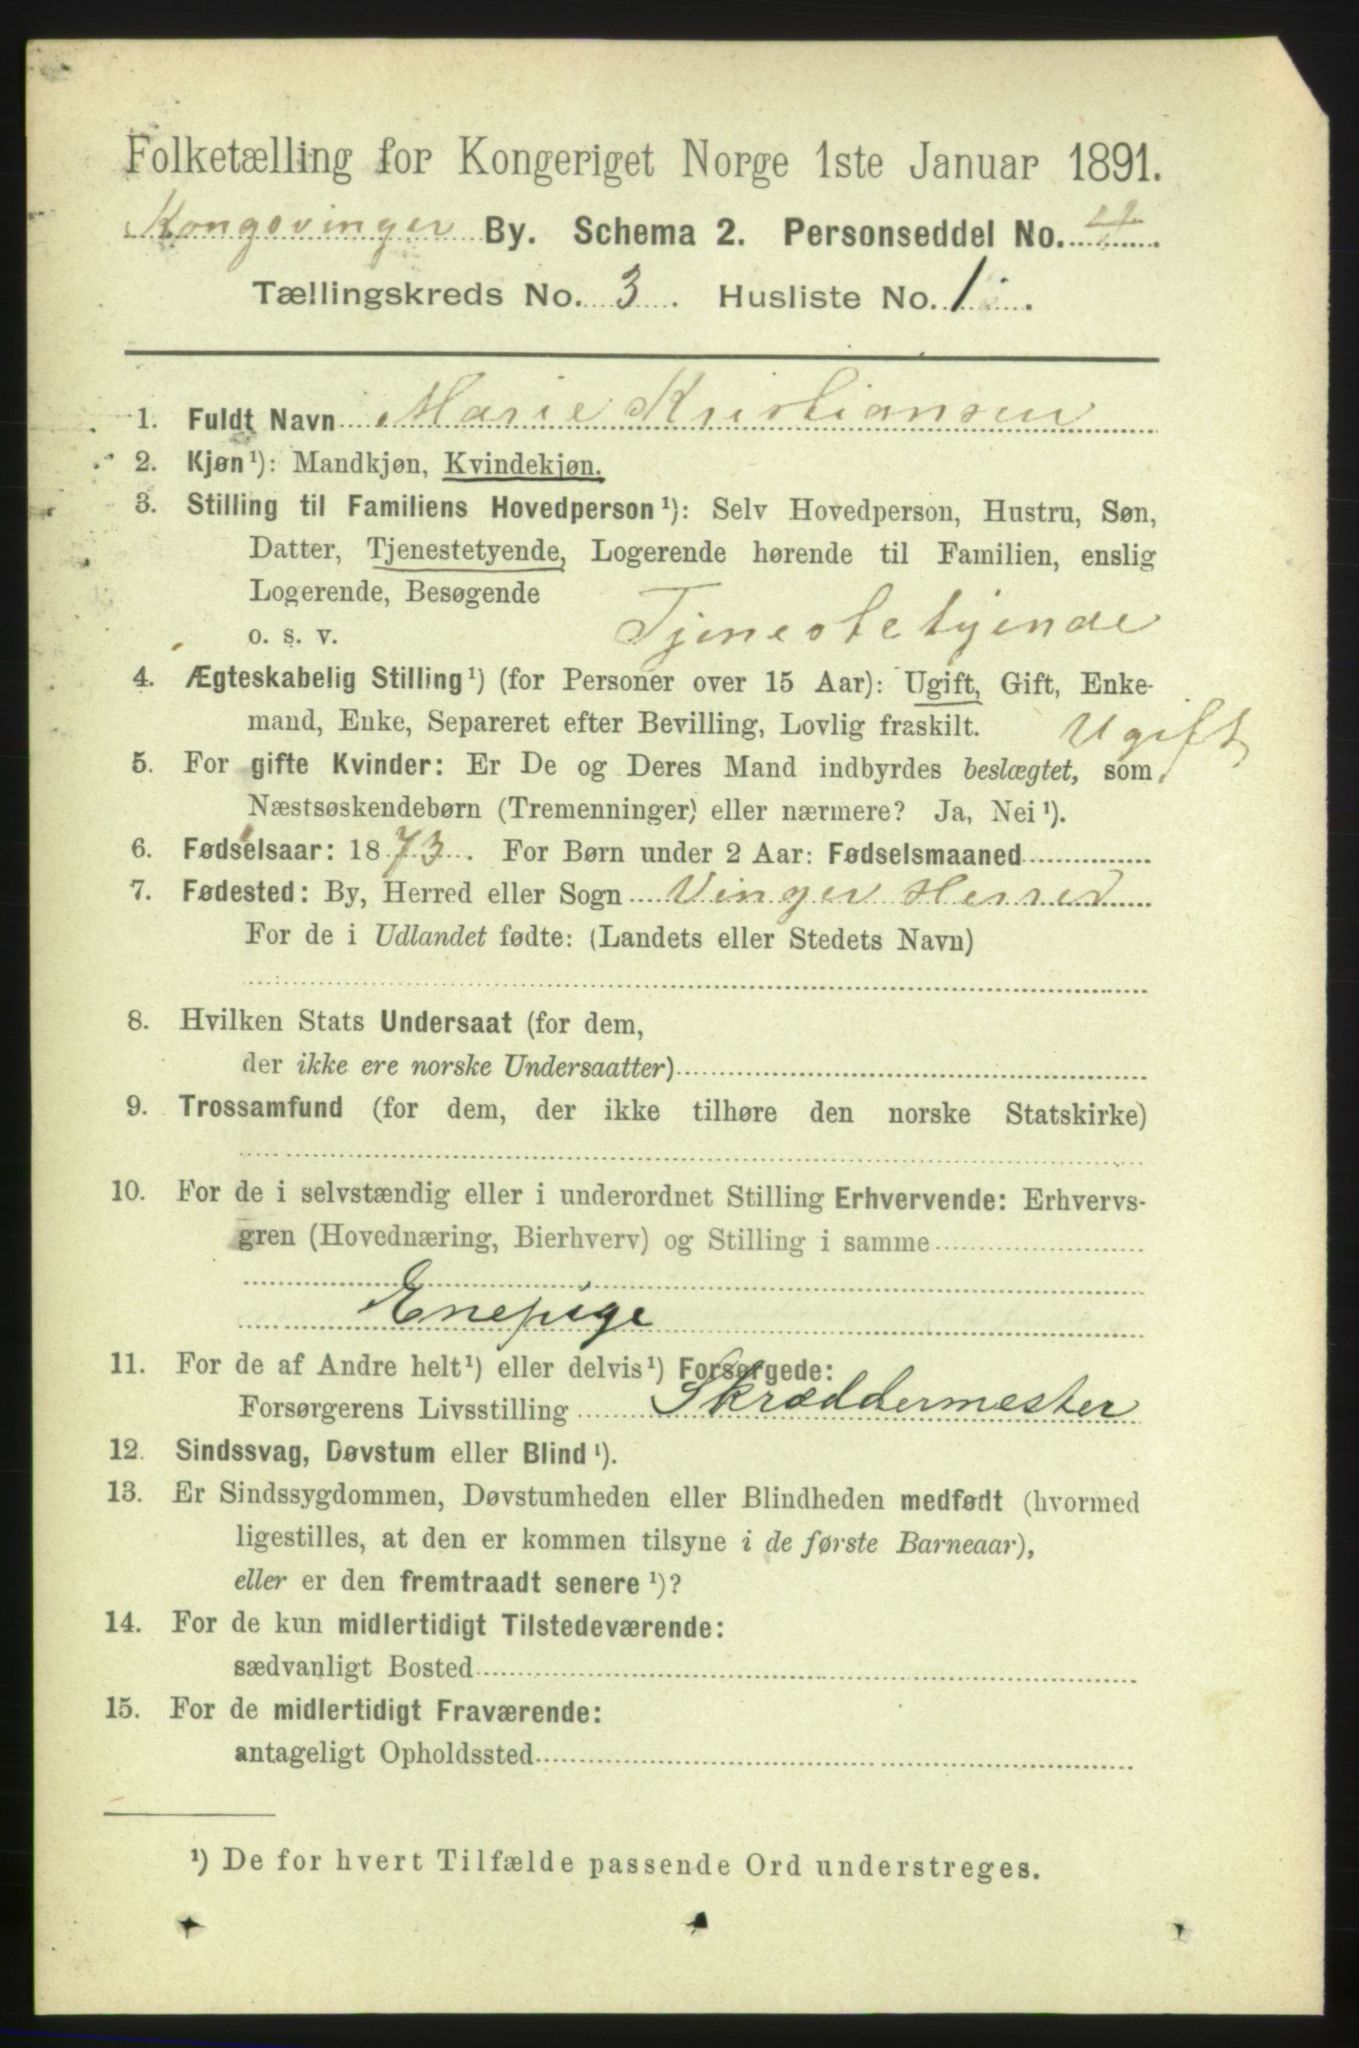 Folketælling for Kongeriget Norge 1ste Januar 1891.
Kongsvinger By. Schema 2. Personseddel No. 4.
Tællingskreds No. 3. Husliste No. 1.
1. Fuldt Navn Marie Kristiansen
2. Kjøn¹): Mandkjøn, Kvindekjøn.
3. Stilling til Familiens Hovedperson¹): Selv Hovedperson, Hustru, Søn,
Datter, Tjenestetyende, Logerende hørende til Familien, enslig
Logerende, Besøgende
o. s. v. Tjenestetyende
4. Ægteskabelig Stilling¹) (for Personer over 15 Aar): Ugift, Gift, Enke-
mand, Enke, Separeret efter Bevilling, Lovlig fraskilt. Ugift
5. For gifte Kvinder: Er De og Deres Mand indbyrdes beslægtet, som
Næstsøskendebørn (Tremenninger) eller nærmere? Ja, Nei¹).
6. Fødselsaar: 1873. For Børn under 2 Aar: Fødselsmaaned
7. Fødested: By, Herred eller Sogn Vinger Herred
For de i Udlandet fødte: (Landets eller Stedets Navn)
8. Hvilken Stats Undersaat (for dem,
der ikke ere norske Undersaatter)
9. Trossamfund (for dem, der ikke tilhøre den norske Statskirke)
10. For de i selvstændig eller i underordnet Stilling Erhvervende: Erhvervs-
gren (Hovednæring, Bierhverv) og Stilling i samme
Enepige
11. For de af Andre helt¹) eller delvis¹) Forsørgede:
Forsørgerens Livsstilling Skræddermester
12. Sindssvag, Døvstum eller Blind¹).
13. Er Sindssygdommen, Døvstumheden eller Blindheden medfødt (hvormed
ligestilles, at den er kommen tilsyne i de første Barneaar),
eller er den fremtraadt senere¹)?
14. For de kun midlertidigt Tilstedeværende:
sædvanligt Bosted
15. For de midlertidigt Fraværende:
antageligt Opholdssted
¹) De for hvert Tilfælde passende Ord understreges.